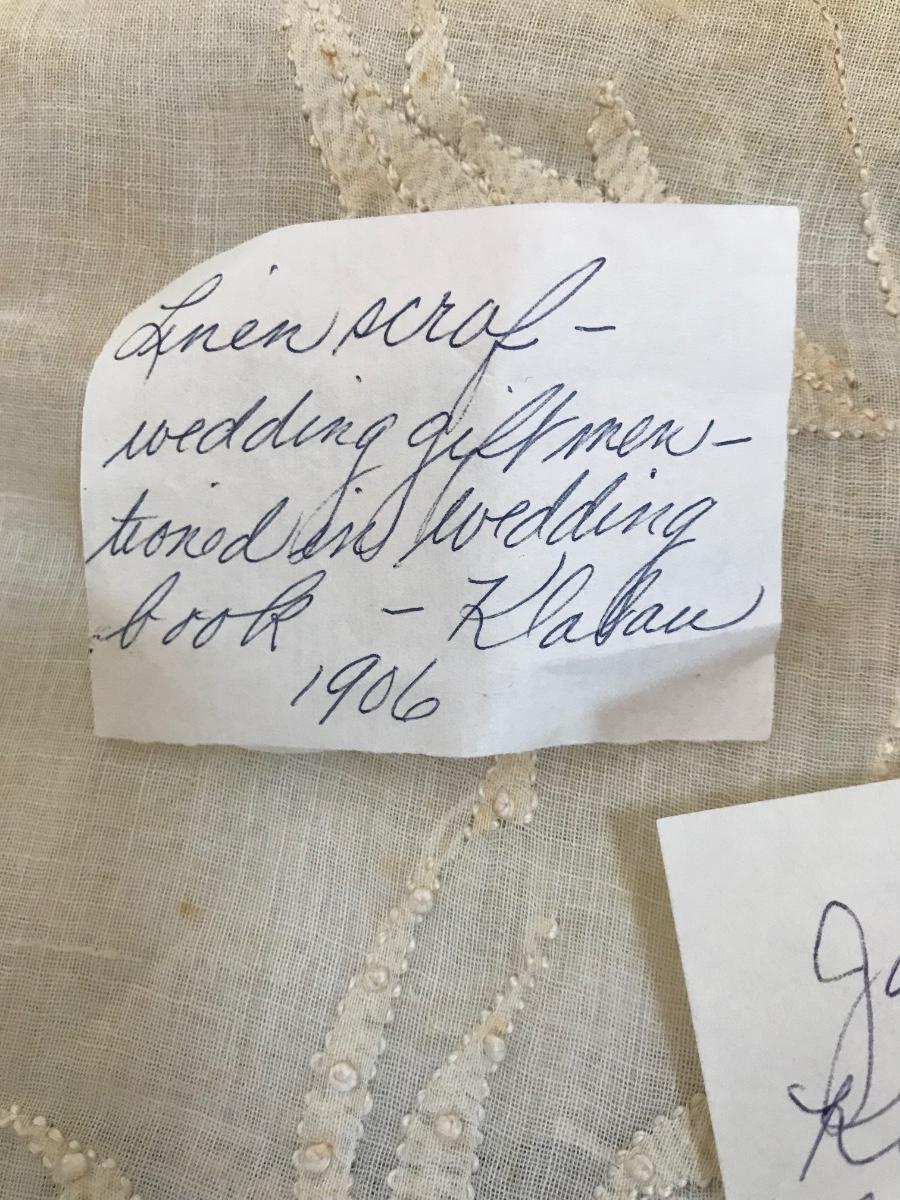 Linen scraf -
wedding gift men-
tioned in wedding
book - Klabau
1906
Ja
K